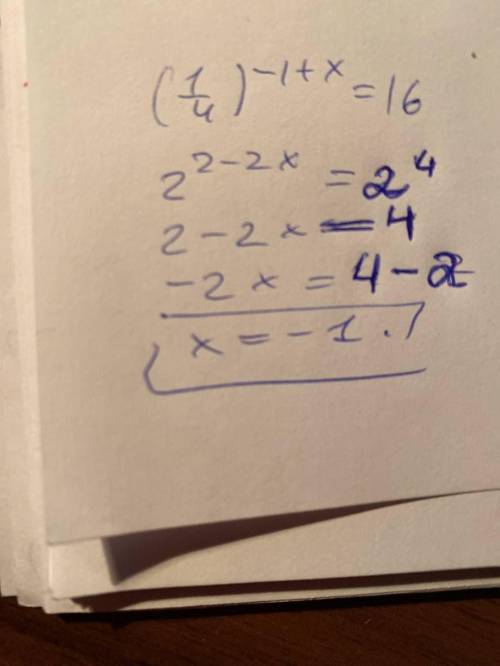 (1/4)^-1+x = 16
2^2-2x = 2^4
2-2x=4
-2x = 4-2
x = -1.